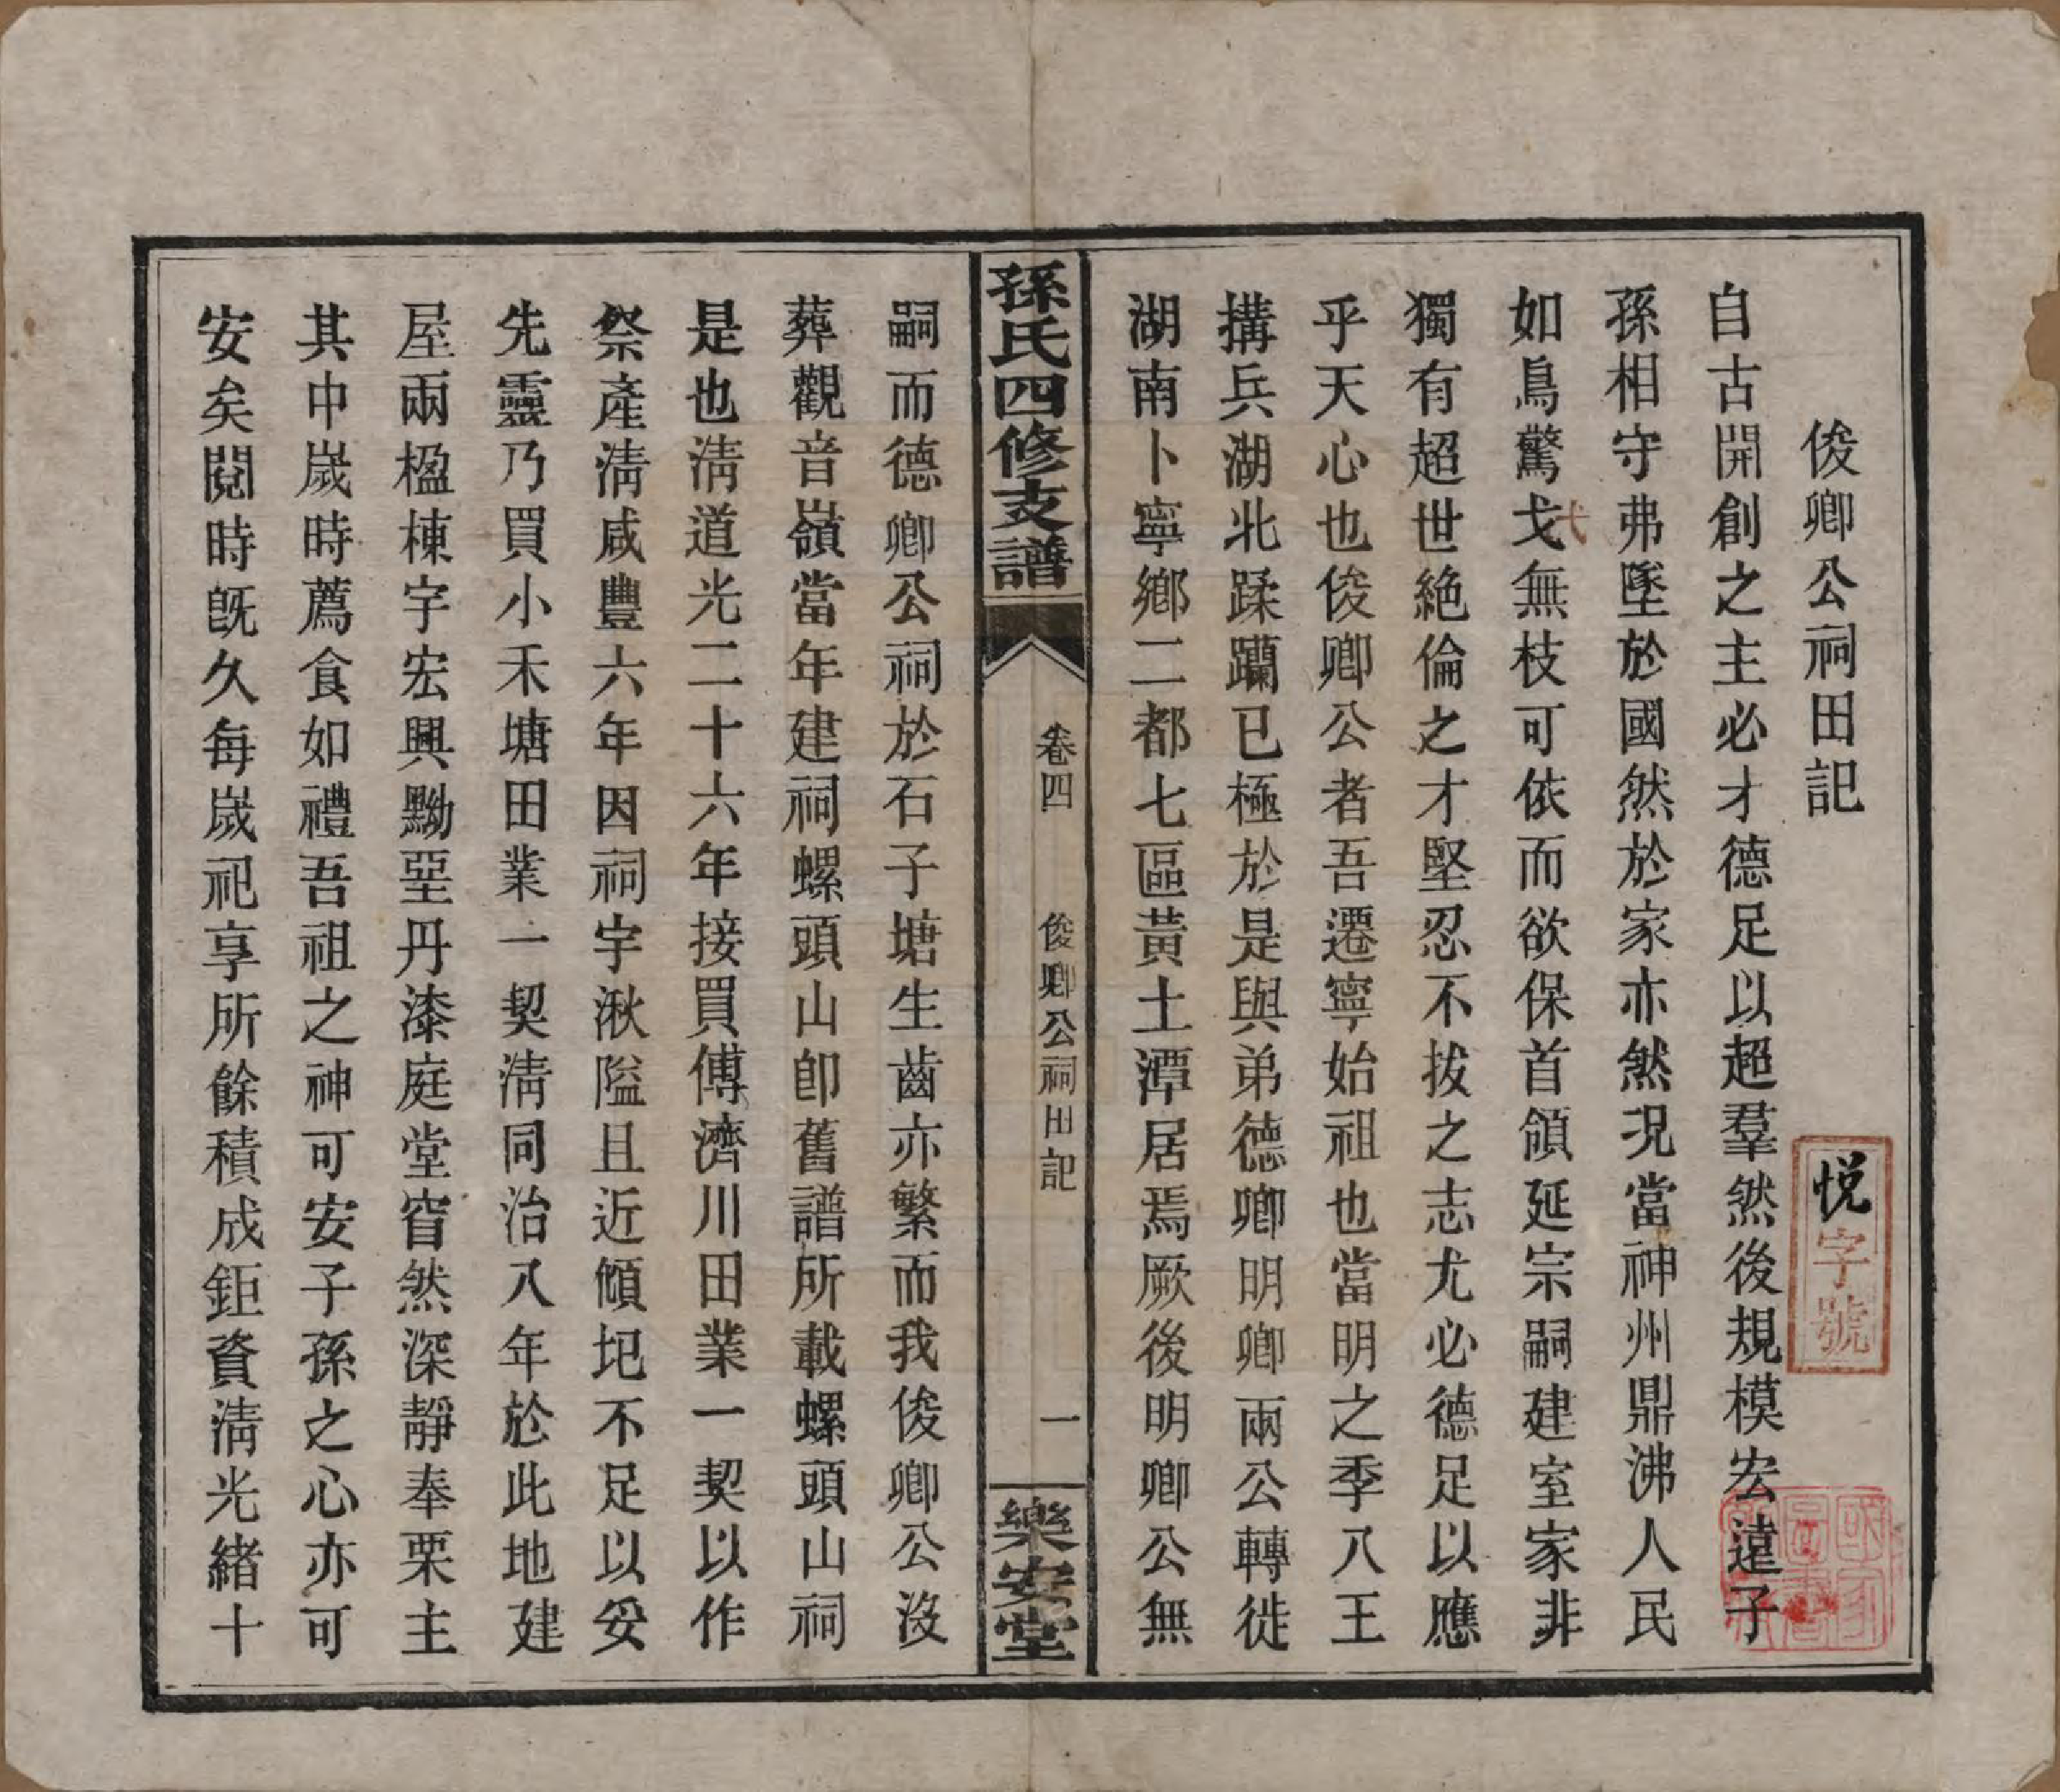 俊卿公祠田記
悅字號
自古開創之主必才德足以超羣然後規模宏遠子
孫相守弗墜於國然於家亦然况當神州鼎沸人民
如鳥驚戈無枝可依而欲保首領延宗嗣建室家非
弋
獨有超世絶倫之才堅忍不拔之志尤必德足以應
乎天心也俊卿公者吾遷寧始祖也當明之季八王
搆兵湖北蹂躝已極於是與弟德卿明卿兩公轉徙
湖南卜寧鄉二都七區黃土潭居焉厥後明卿公無
孫氏四修支譜
卷四
俊卿公祠田記
一
樂安堂
嗣而德卿公祠於石子塘生齒亦繁而我俊卿公沒
葬觀音嶺當年建祠螺頭山卽舊譜所載螺頭山祠
是也淸道光二十六年接買傅濟川田業一契以作
祭產淸咸豐六年因祠宇湫隘且近傾圮不足以妥
先靈乃買小禾塘田業一契淸同治八年於此地建
屋兩楹棟宇宏興黝堊丹漆庭堂窅然深靜奉栗主
其中歲時薦食如禮吾祖之神可安子孫之心亦可
安矣閱時旣久每歲祀享所餘積成鉅資淸光緒十